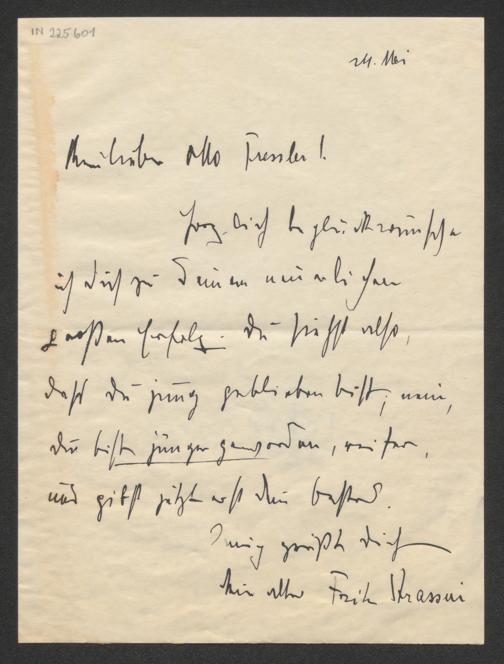 IN 225601
24. Mai
Mein lieber Otto Tressler!
Herzlich beglückwünsche
ich Dich zu Deinem neuerlichen
großen Erfolg. Du siehst also,
daß Du jung geblieben bist; nein,
Du bist jünger geworden, reifer,
und gibst jetzt erst Dein Bestes.
Innig grüßt Dich
Dein alter Fritz Strassni